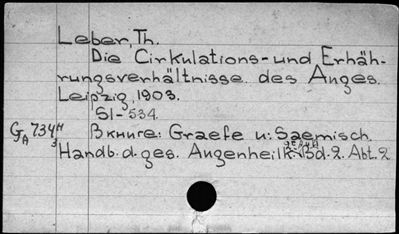 Leber, Th.
Die Cirkulations- und Erhäh-
rungsverhältnisse des Anges.
Leipzig, 1903.
SI-534.
G A 734 H 3 В книге: Graefe u: Saemisch.
Handb. d. ges. Angenheilk. Bd. 2. Abt. 2